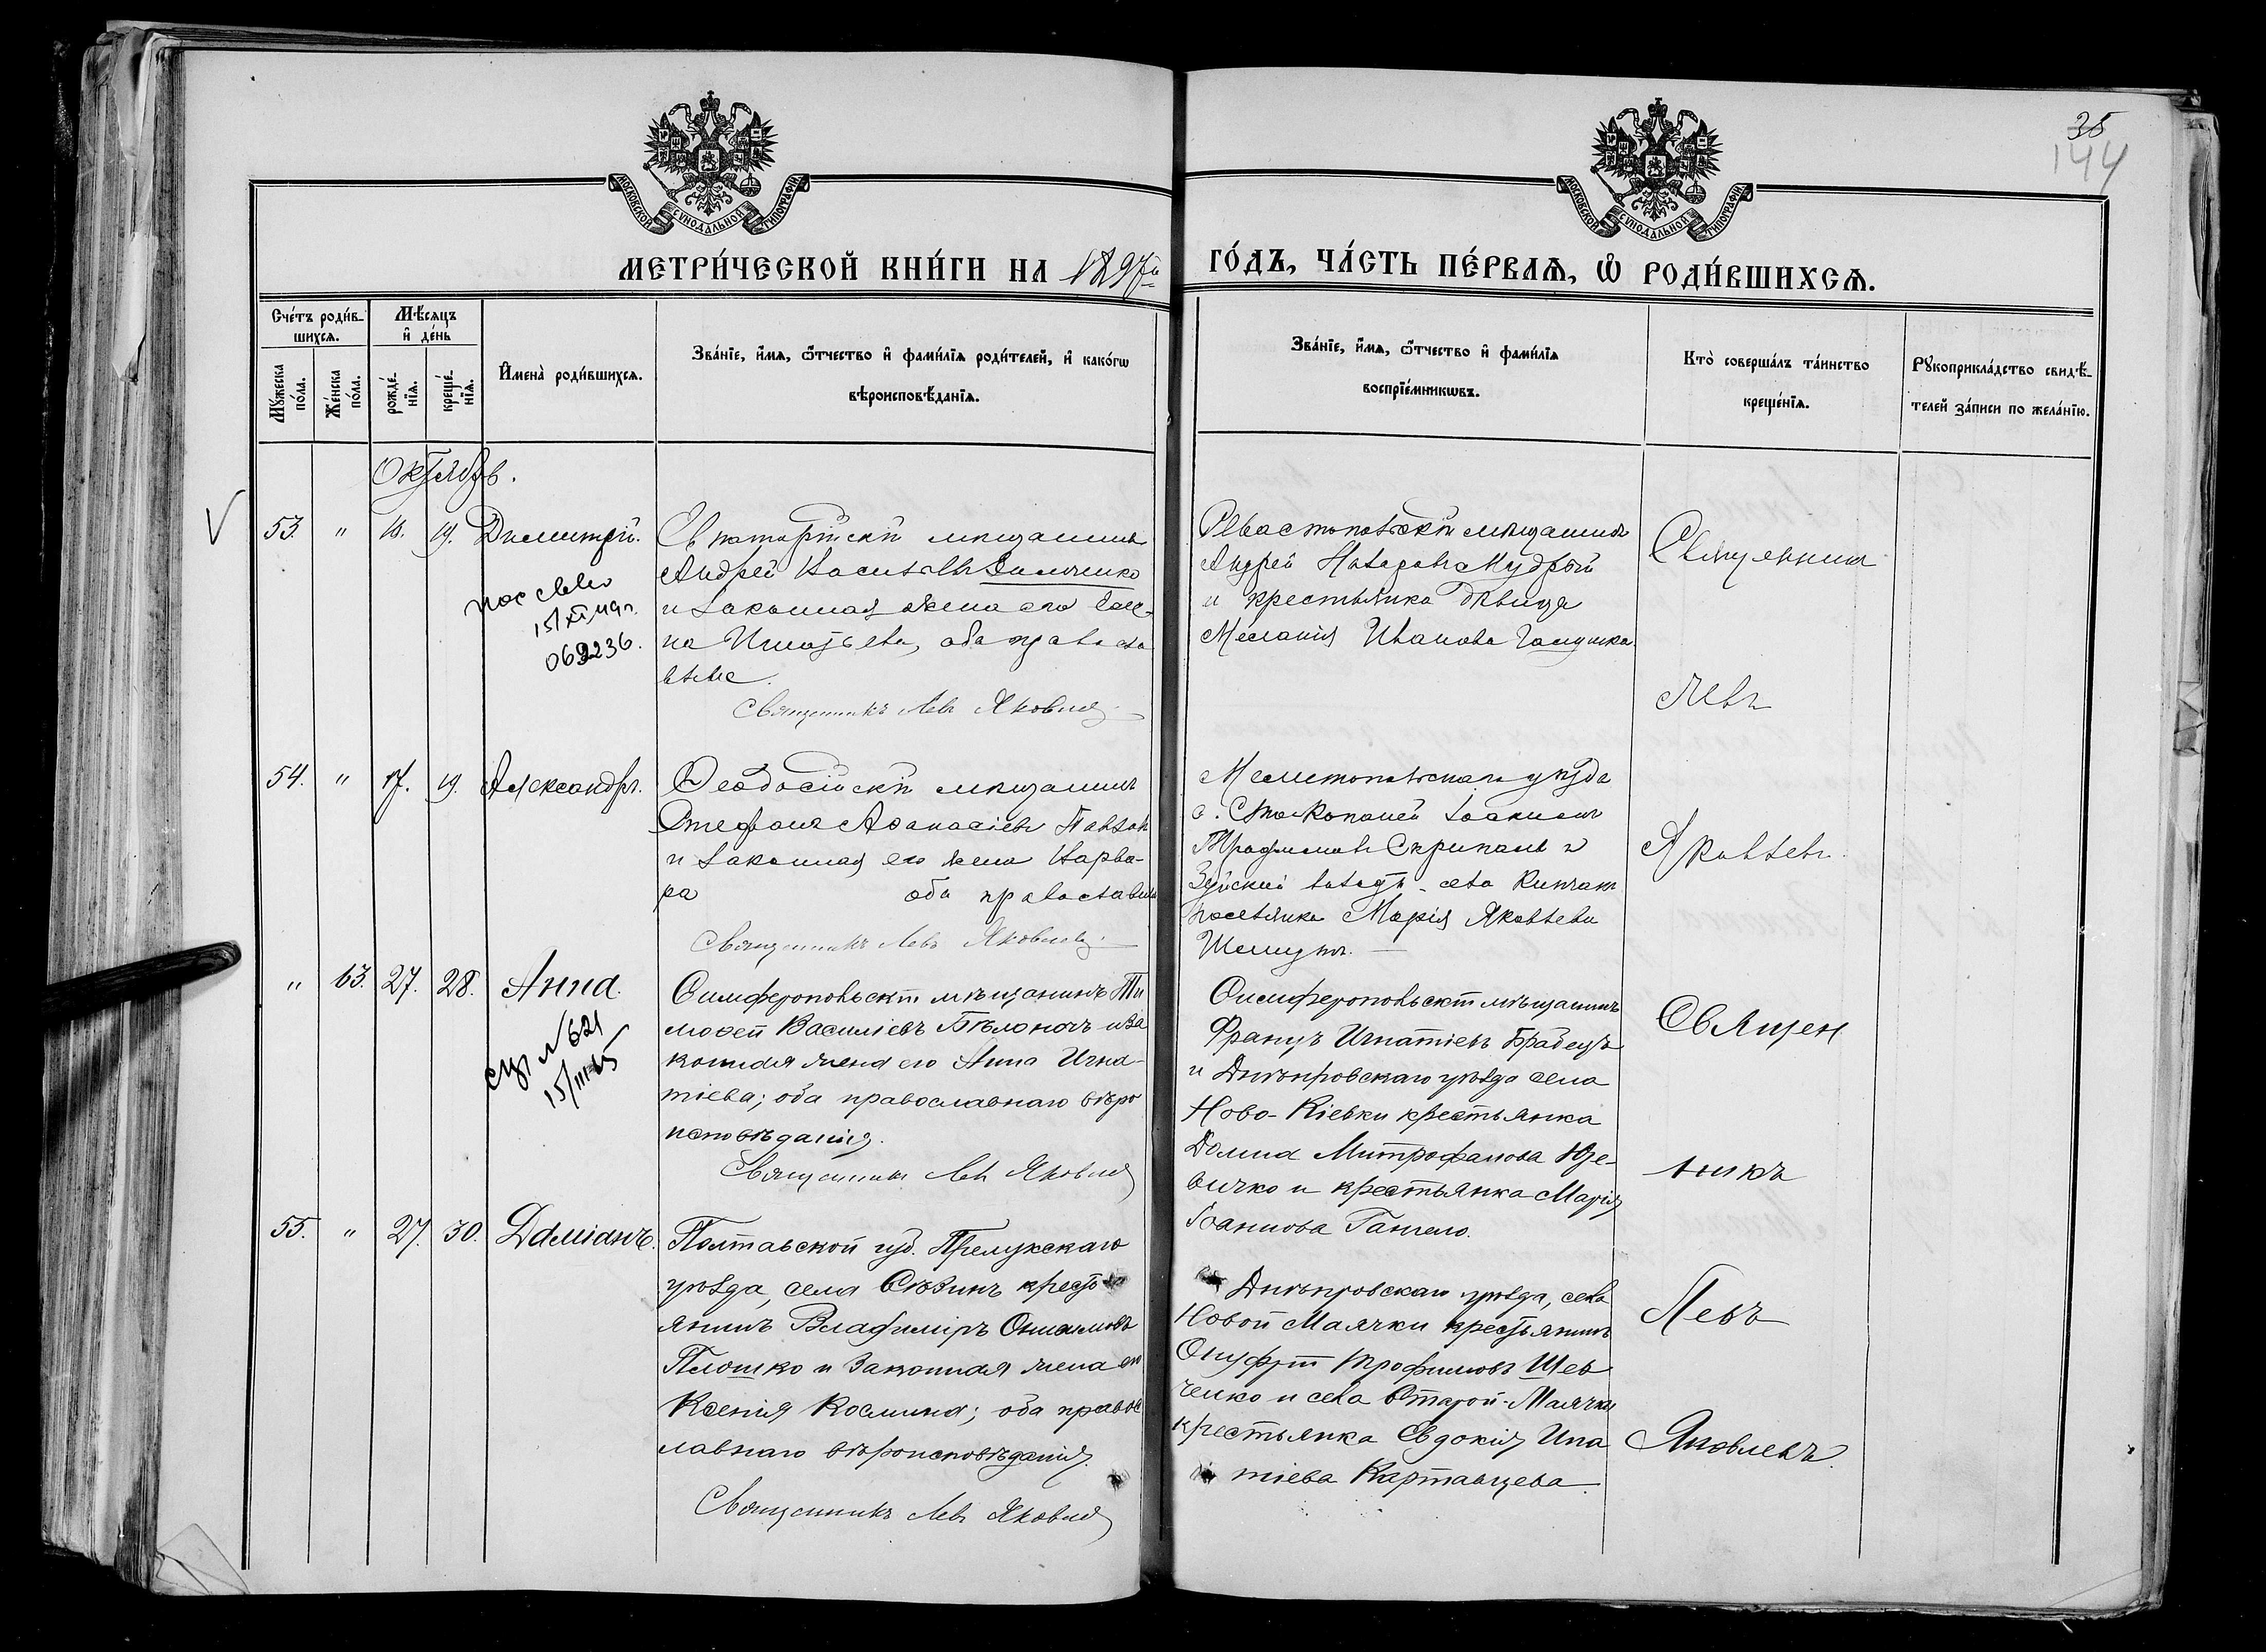 35
144
МОСКОВСКОЙ СѴНОДАЛЬНОЙ ТИПОГРАФІИ
МОСКОВСКОЙ СѴНОДАЛЬНОЙ ТИПОГРАФІИ
МЕТРИ́ЧЕСКОЙ КНИ́ГИ НА 1897й
ГО́ДЪ, ЧА́СТЬ ПЕ́РВАѦ, Ѡ҆ РОДИ́ВШИХСѦ.
Сче́тъ роди́в-
шихсѧ.
Мꙋ́жеска по́ла.
Же́нска по́ла.
Мѣ́сѧцъ
и҆ де́нь
рожде́-
нїѧ.
креще́-
нїѧ.
И҆мена̀ роди́вшихсѧ.
Зва́нїе, и҆́мѧ, ѻ҆́тчество и҆ фами́лїѧ роди́телей, и҆ како́гѡ
вѣроисповѣ́данїѧ.
Зва́нїе, и҆́мѧ, ѻ҆́тчество и҆ фами́лїѧ
воспрїе́мникѡвъ.
Кто̀ соверша́лъ та́инство
креще́нїѧ.
Рꙋкоприкла́дство свидѣ́-
телей за́писи по жела́нїю.
Октябрь.
53. " 19. Димитрій.
Евпаторійскій мѣщанинъ
Андрей
и законная жена его
оба правосла
вные.
Священникъ Левъ Яковлев
15/XI
069236.
Севастопольскій мѣщанинъ
Андрей Мудрый
и крестьянка дѣвица
Меланія Иванова
Священникъ
Левъ
54. " 17. 19. Александръ.
Ѳеодосійскій мѣщанинъ
Стефанъ Аѳанасіевъ
и законная его жена Варва-
ра оба православн
Священникъ Левъ Яковлевъ
Мелитопольскаго уѣзда
с. Іоакимъ
Трофимовъ Скрипаль и
села
поселянка Марія Яковлева
Яковлевъ.
" 63. 27. 28. Анна.
№ 621
15/III 45
Симферопольскій мѣщанинъ Ти
моѳей Василіевъ Бѣлоночъ и за
конная жена его Анна Игна-
тіева; оба православнаго вѣро
исповѣданія.
Священникъ Левъ Яковлев
Симферопольскій мѣщанинъ
Францъ Игнатіевъ Брабецъ
и Днѣпровскаго уѣзда села
Ново-Кіевки крестьянка
Домна Митрофанова
вичко и крестьянка Марія
Іоаннова
Священ
никъ
55. " 27. 30. Даміанъ.
Полтавской губ. Прилукскаго
уѣзда, села крестъ
янинъ Владиміръ Онисимовъ
Плошко и законная жена его
Ксенія Космина; оба правос
лавнаго вѣроисповѣданія.
Священникъ Левъ Яковлев
Днѣпровскаго уѣзда, села
Новой Маячки крестьянинъ
Онуфрій Трофимовъ Шев
ченко и села Старой-Маячки
крестьянка Евдокія Ипа
тіева Картавцева.
Левъ
Яковлевъ.